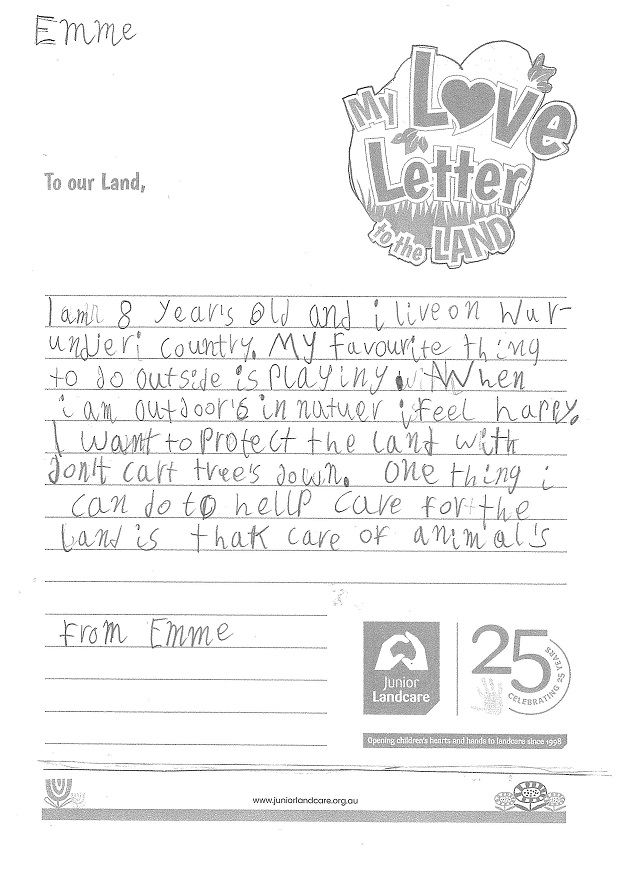 Emme
My Love
Letter
to the LAND
To our Land,
I am 8 year's old and i live on Wur-
undjeri country. My favourite thing
to do outside is playing. When
i am outdoor's in natuer i feel happy.
I want to protect the land with
don't cart tree's down. One thing i
can do to hellp care for the
land is thak care of animal's
from Emme
Junior
Landcare
25
CELEBRATING 25 YEARS
Opening children's hearts and hands to landcare since 1998
www.juniorlandcare.org.au